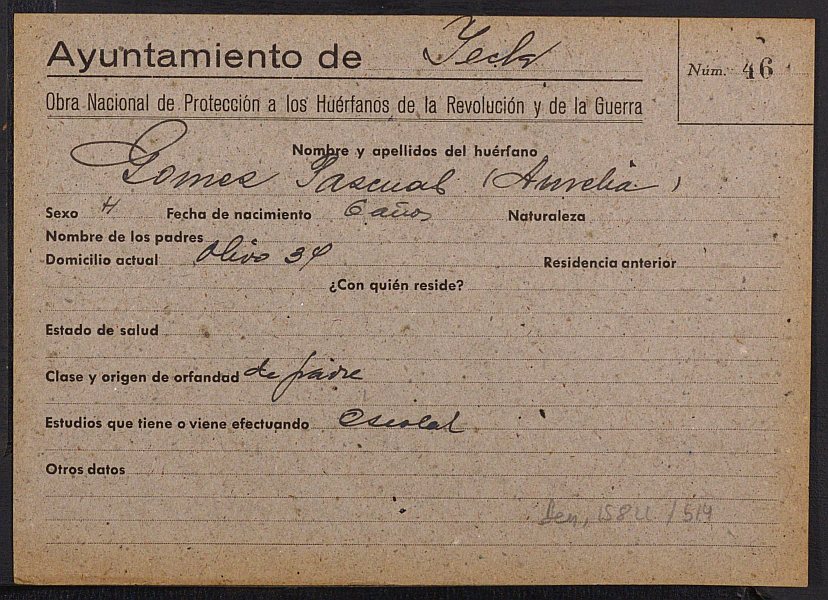 Ayuntamiento de Yecla
Núm. 46
Obra Nacional de Protección a los Huérfanos de la Revolución y de la Guerra
Nombre y apellidos del huérfano
Gomez Pascual (Aurelia)
Sexo H Fecha de nacimiento 6 años Naturaleza
Nombre de los padres
Domicilio actual Olivo 34 Residencia anterior
¿Con quién reside?
Estado de salud
Clase y origen de orfandad de padre
Estudios que tiene o viene efectuando Escolar
Otros datos
/ 514